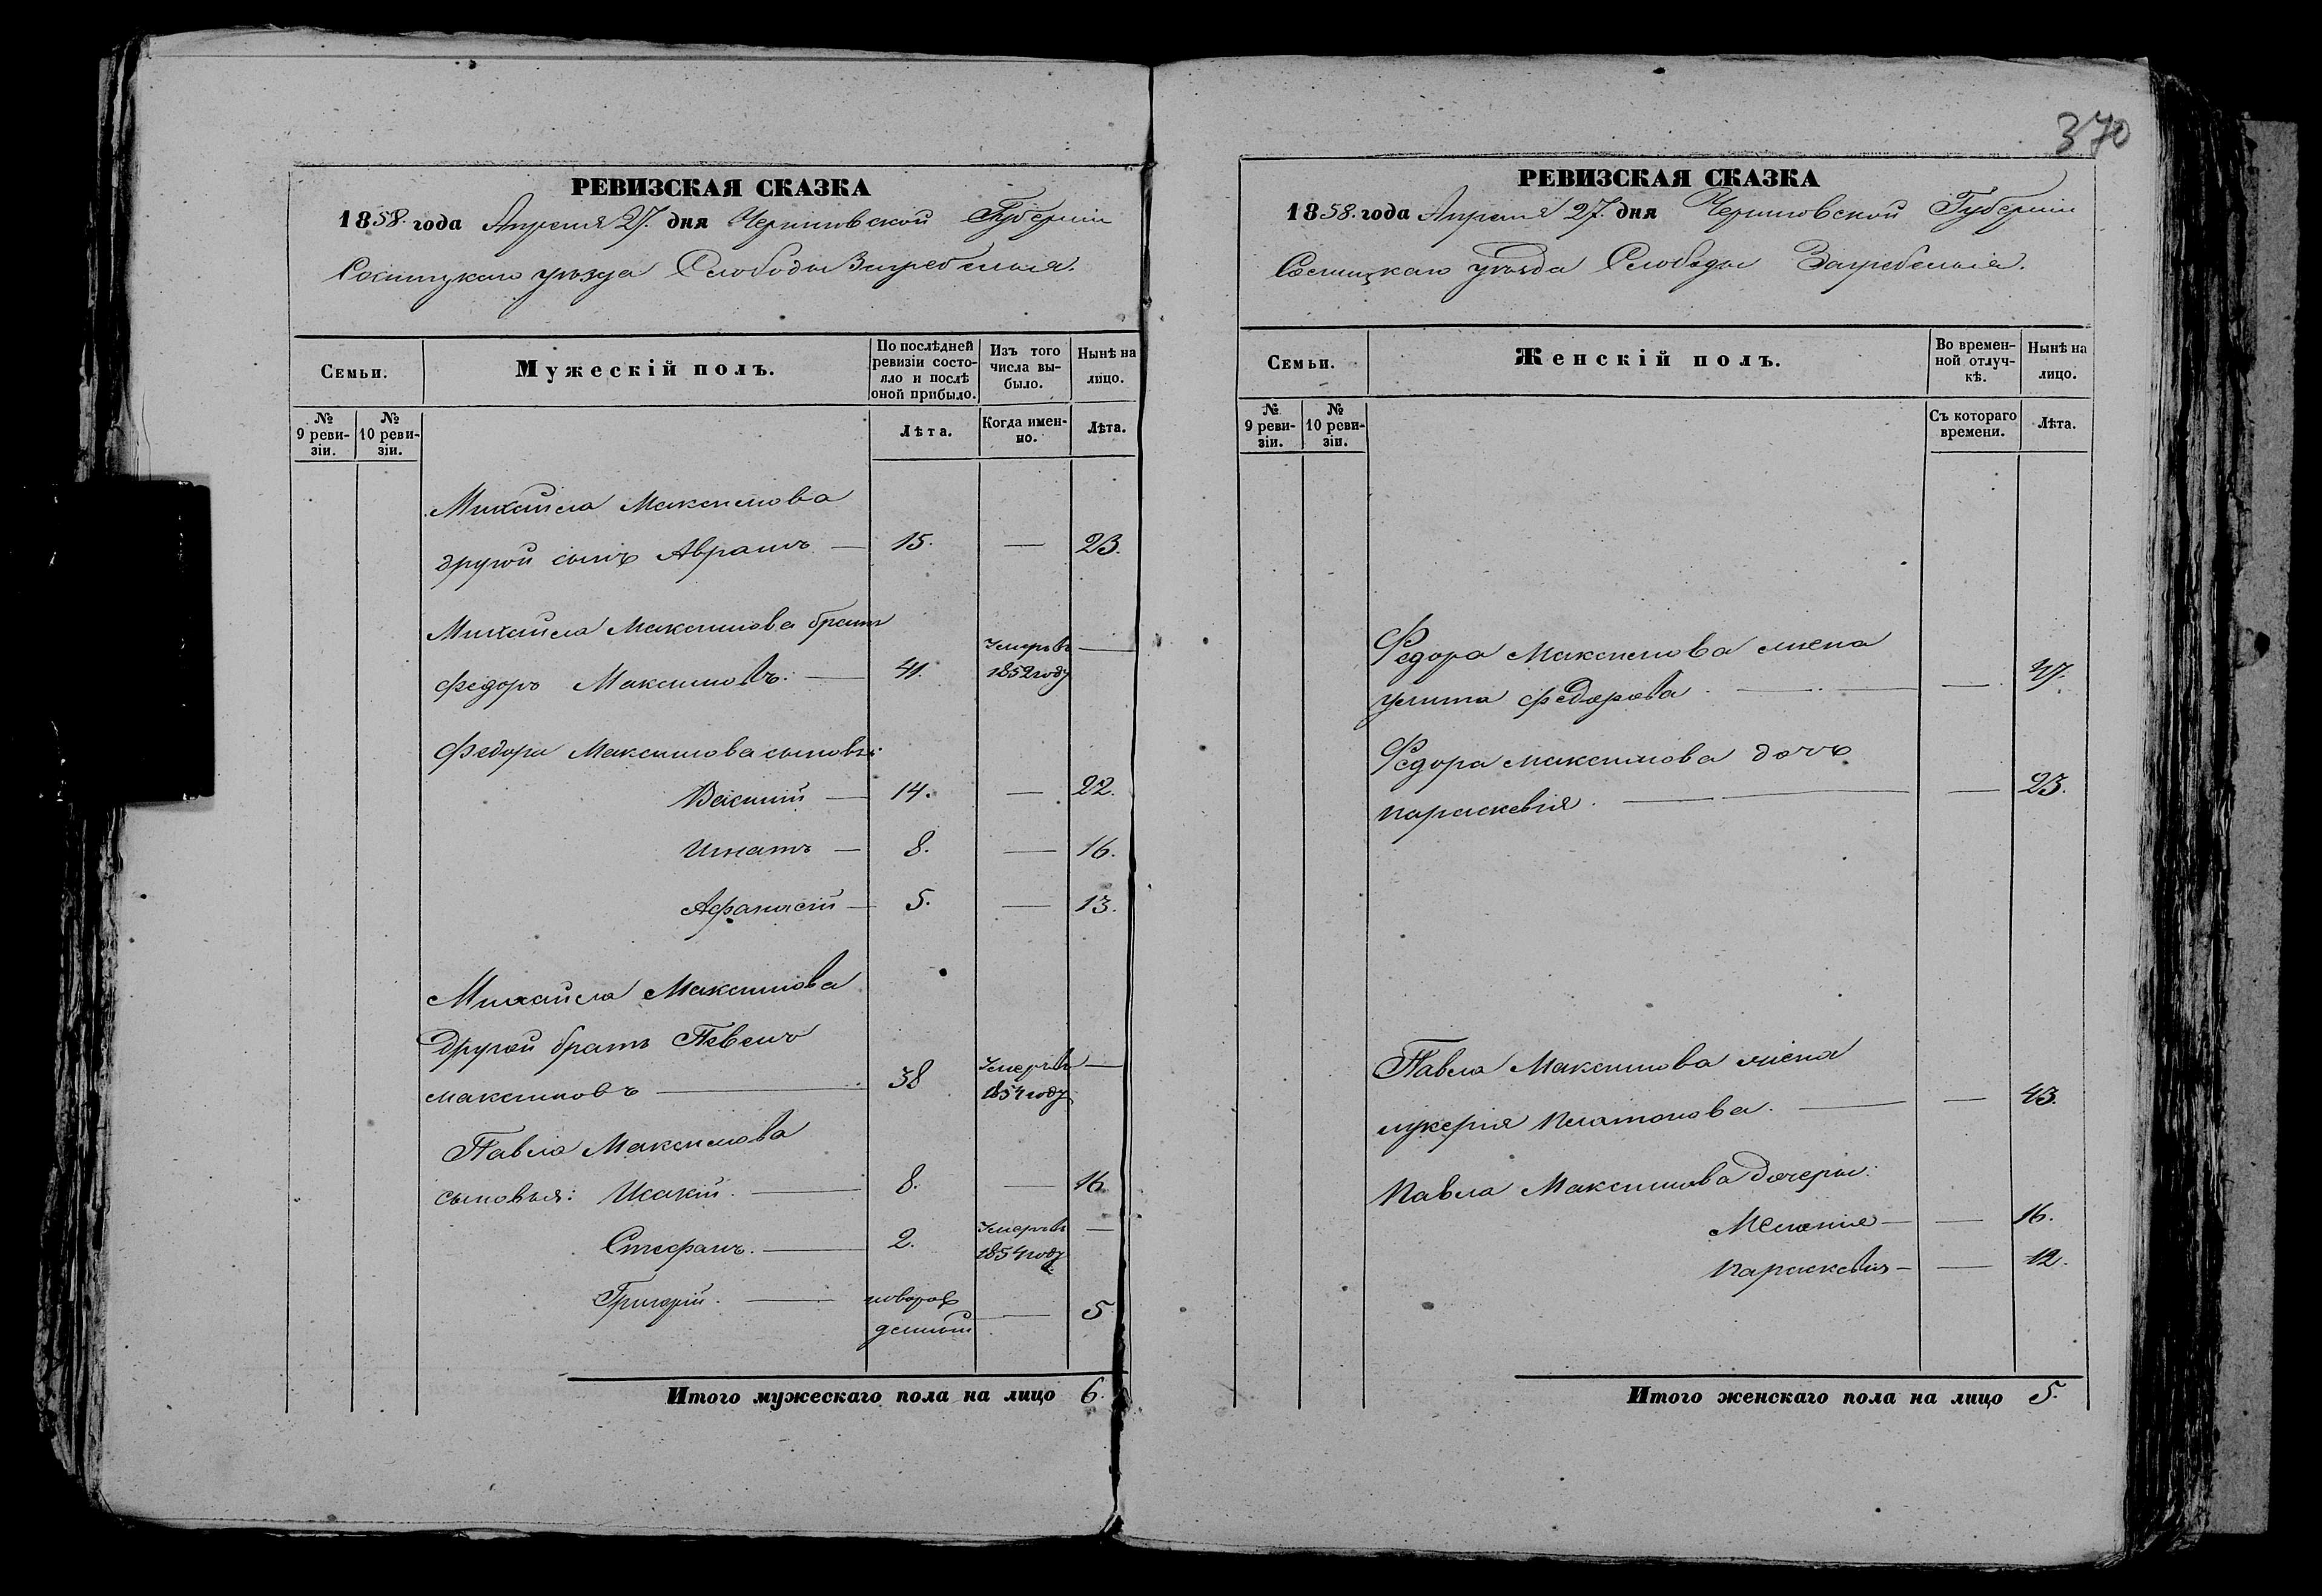 370
РЕВИЗСКАЯ СКАЗКА
1858. года Апреля 27. дня Черниговской Губерніи
Сосницкаго уѣзда Слободы Загребелья.
Семьи.
Мужескій полъ.
По послѣдней ревизіи состо-
яло и послѣ
оной прибыло.
Изъ того
числа вы-
было.
Нынѣ на
лицо.
№
9 реви-
зіи.
№
10 реви-
зіи.
Лѣта.
Когда имен-
но.
Лѣта.
Михайла Максимова
другой сынъ Аврамъ — 15. — 23.
Михайла Максимова братъ
Федоръ Максимовъ. — 41. Умеръ въ 1852 году —
Федора Максимова сыновья:
Василий — 14. — 22.
Игнатъ — 8. — 16.
Афанасій — 5. — 13.
Михайла Максимова
Другой братъ Павелъ
максимовъ — 38 Умеръ въ 1854 году —
Павла Максимова
сыновья: Исакій. — 8. — 16
Стефанъ. — 2. Умеръ въ 1854 году —
Григорій. — новорож
денный — 5
Итого мужескаго пола на лицо 6.
РЕВИЗСКАЯ СКАЗКА
1858. года Апреля 27. дня Черниговской Губерніи
Сосницкаго уѣзда Слободы Загребелья.
Семьи.
Женскій полъ.
Во времен-
ной отлуч-
кѣ.
Нынѣ на
лицо.
№
9 реви-
зіи.
№
10 реви-
зіи.
Съ котораго
времени.
Лѣта.
Федора Максимова жена
улита федорова. — — 47.
Федора максимова дочь
параскевія. — — 23.
Павла Максимова жена
лукерія Платонова. — — 43.
Павла Максимова Дочери:
Меланія — — 16.
Параскевія — — 12.
Итого женскаго пола на лицо 5.